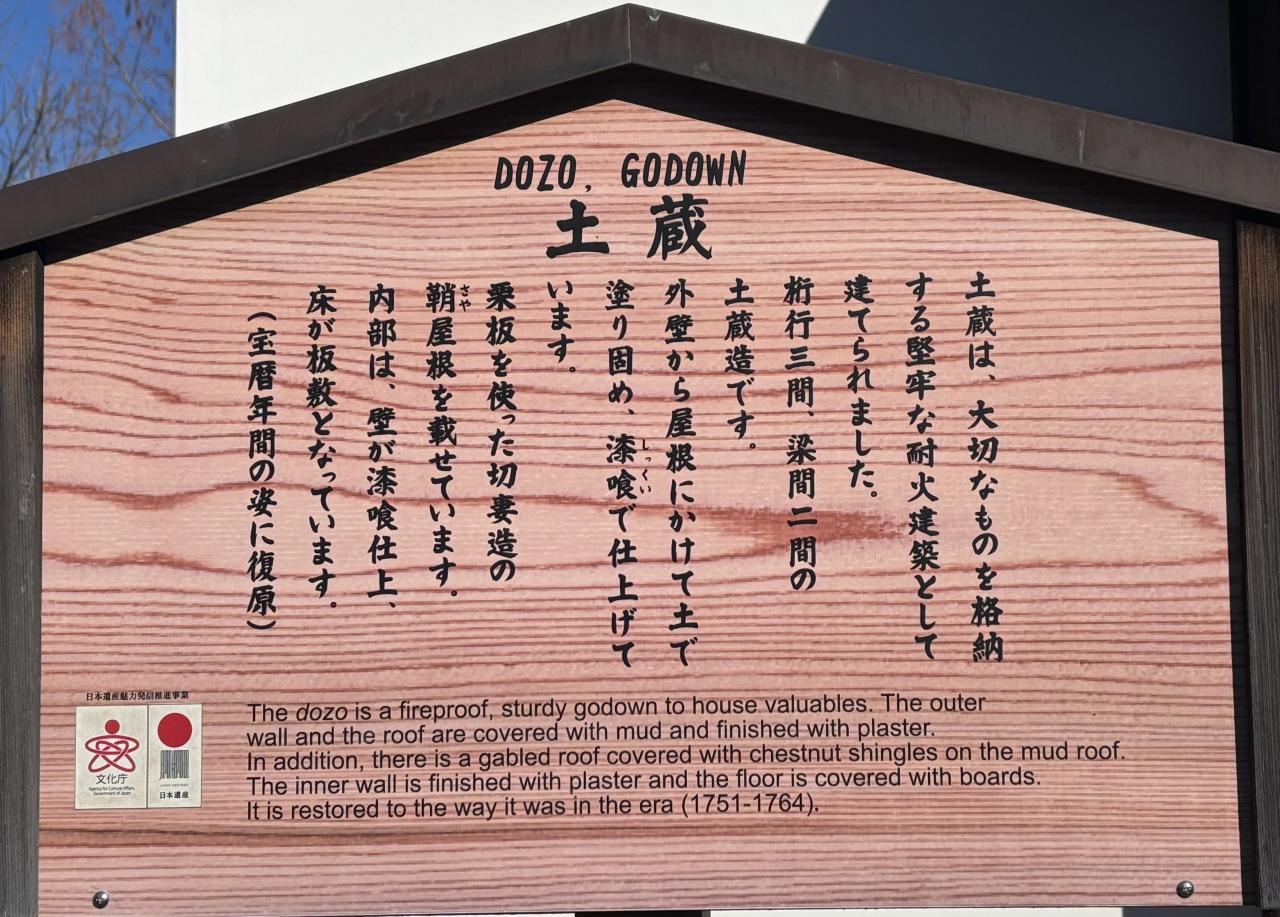 DOZO, GODOWN
土蔵
土蔵は、大切なものを格納
する堅牢な耐火建築として
建てられました。
桁行三間、梁間二間の
土蔵造です。
外壁から屋根にかけて土で
塗り固め、漆喰で仕上げて
しっくい
います。
栗板を使った切妻造の
鞘屋根を載せています。
さや
内部は、壁が漆喰仕上、
床が板敷となっています。
（宝暦年間の姿に復原）
日本遺産魅力発信推進事業
文化庁
Agency for Cultural Affairs,
Government of Japan
JAPAN HERITAGE
日本遺産
The dozo is a fireproof, sturdy godown to house valuables. The outer
wall and the roof are covered with mud and finished with plaster.
In addition, there is a gabled roof covered with chestnut shingles on the mud roof.
The inner wall is finished with plaster and the floor is covered with boards.
It is restored to the way it was in the era (1751-1764).